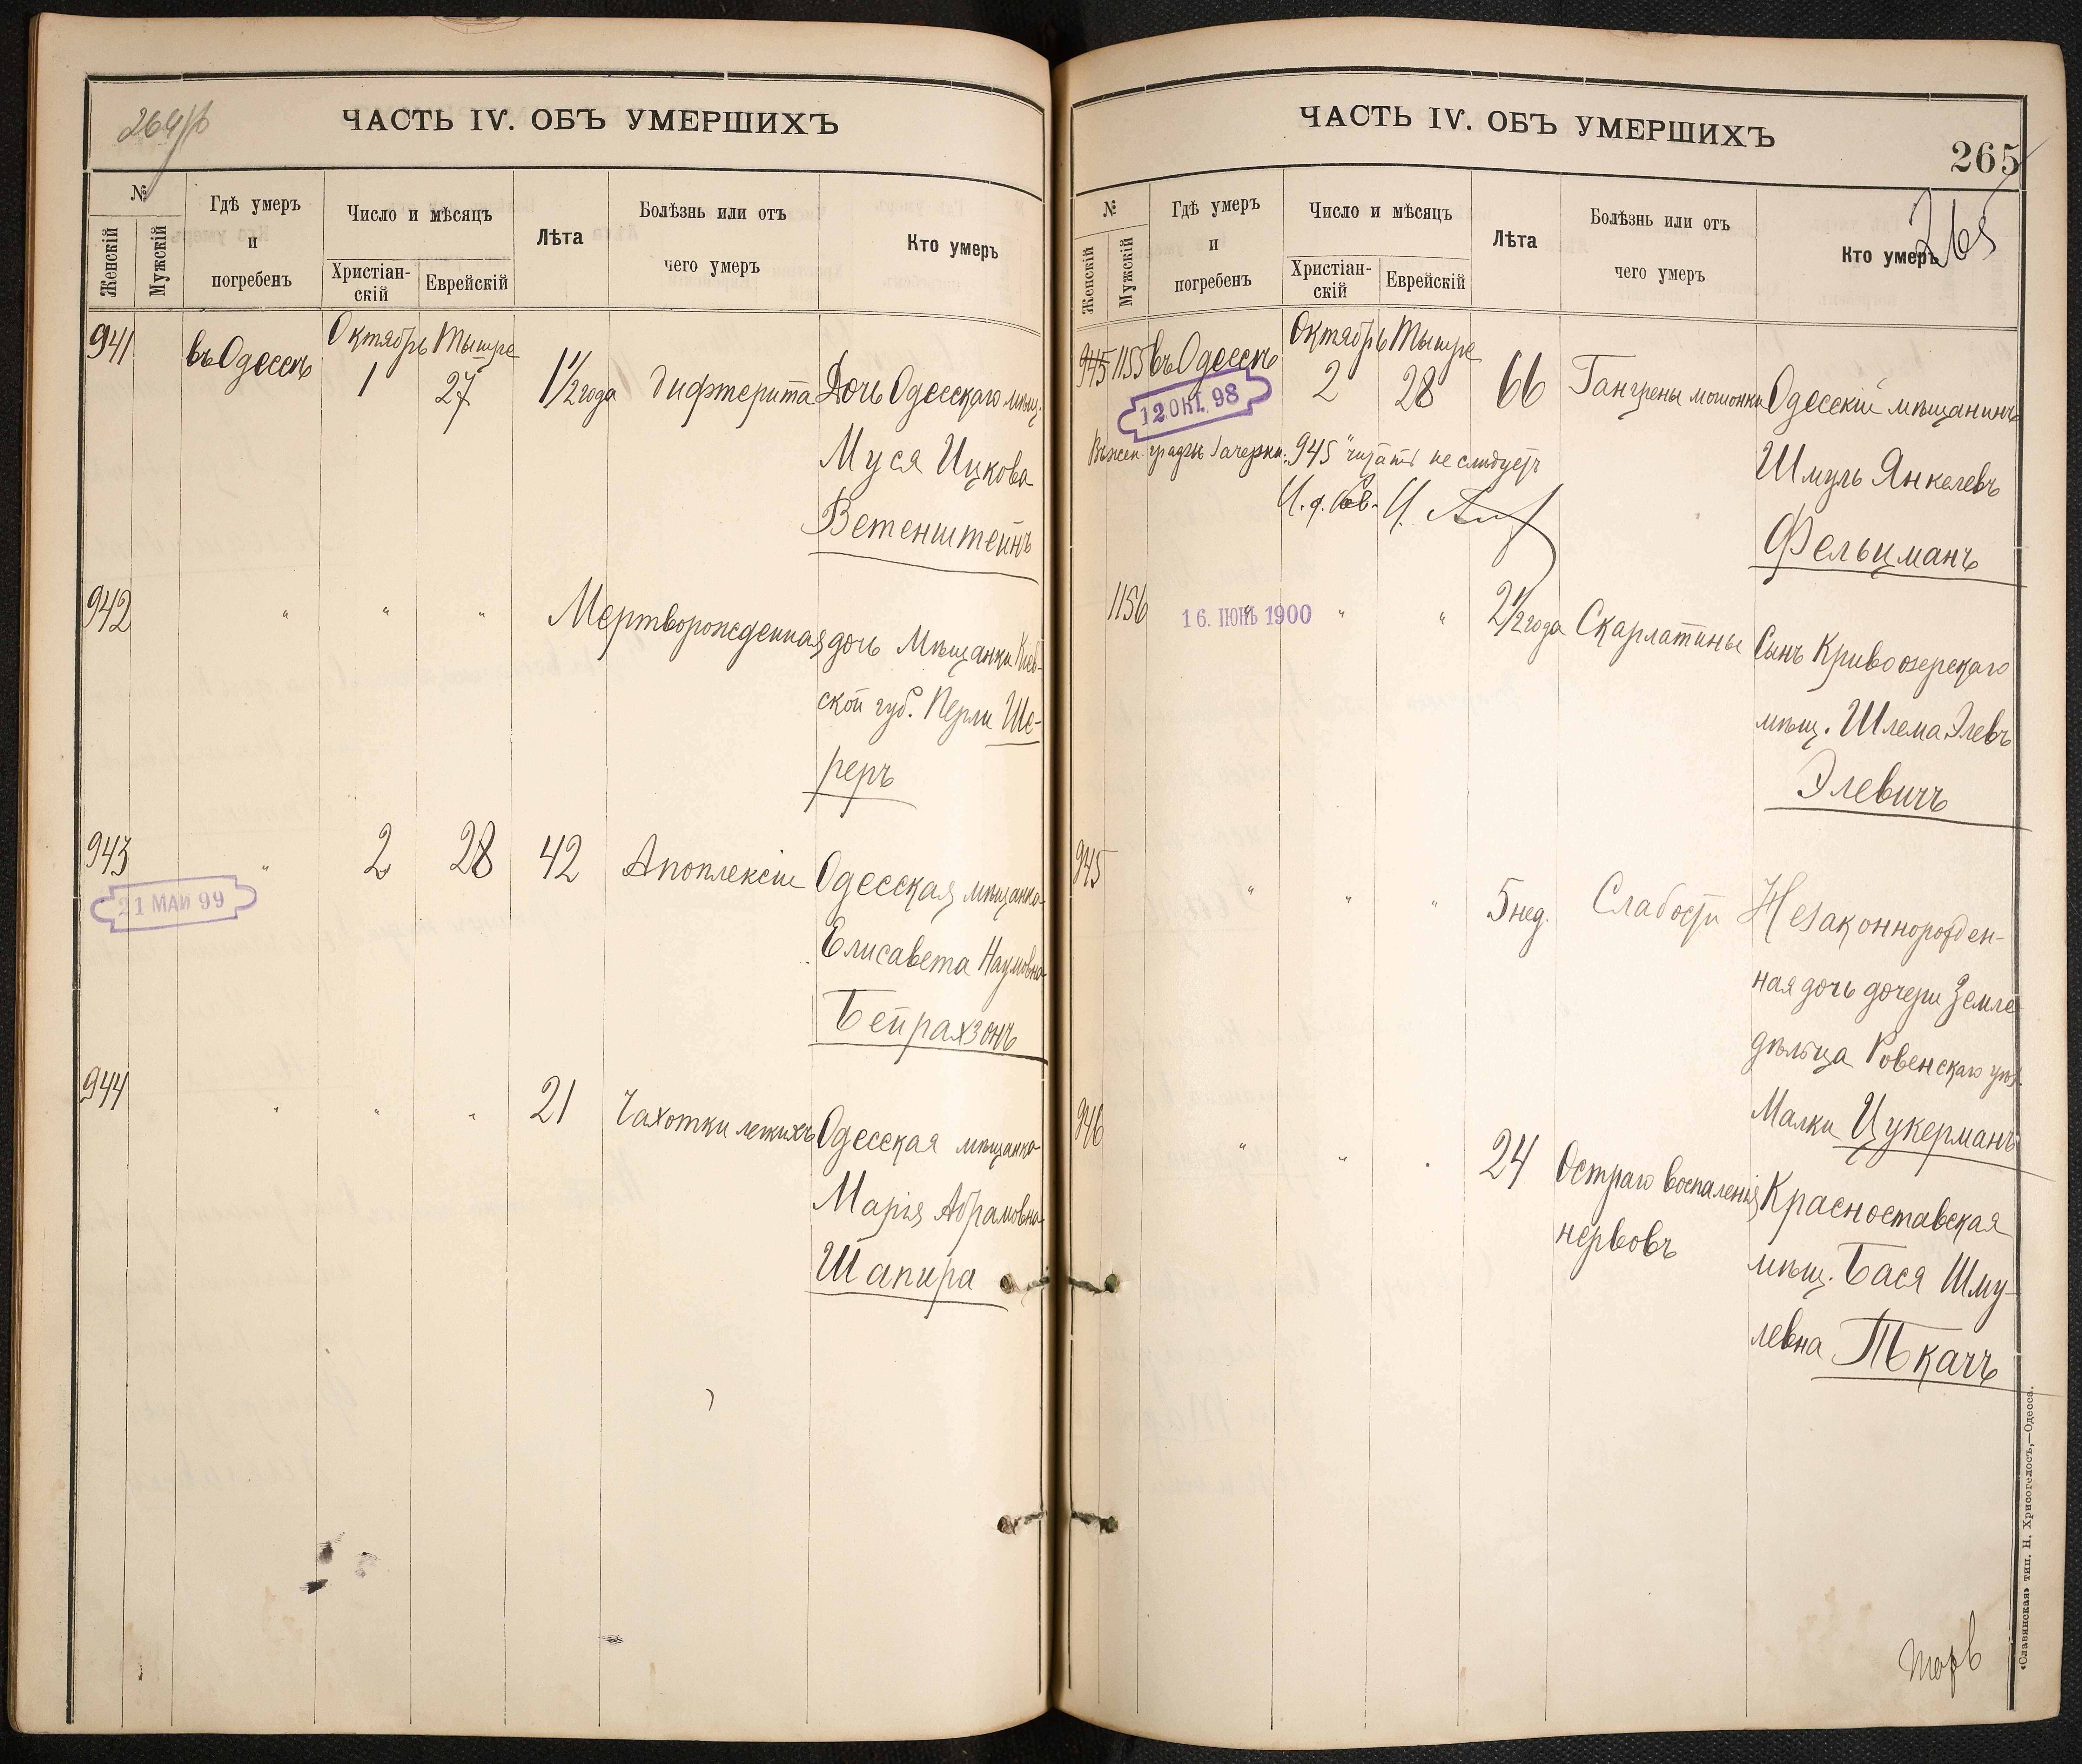 264/б
ЧАСТЬ IV. ОБЪ УМЕРШИХЪ
№
Женскій
Мужскій
Гдѣ умеръ
и
погребенъ
Число и мѣсяцъ
Христіан-
скій
Еврейскій
Лѣта
Болѣзнь или отъ
чего умеръ
Кто умеръ
941
въ Одессѣ
Октябрь
1
Тышре
27
1 1/2 года
Дифтерита
Дочь Одесскаго мѣщ.
Муся Ицкова
Ветенштейнъ
942
"
"
"
Мертворожденная
дочь мѣщанки Кіев-
ской губ. Перли Ше-
реръ
943
21 МАЙ 99
"
2
28
42
Апоплексіи
Одесская мѣщанка
Елисавета Наумовна
Бейрахзонъ
944
"
"
"
21
Чахотки легкихъ
Одесская мѣщанка
Марія Абрамовна
Шапира
ЧАСТЬ IV. ОБЪ УМЕРШИХЪ
265
265
№
Женскій
Мужскій
Гдѣ умеръ
и
погребенъ
Число и мѣсяцъ
Христіан-
скій
Еврейскій
Лѣта
Болѣзнь или отъ
чего умеръ
Кто умеръ
945
1155
въ Одессѣ
12 ОКТ. 98
Октябрь
2
Тышре
28
66
Гангрены мошонки
Одесскій мѣщанинъ
Шмуль Янкелевъ
Фельцманъ
Въ жен. градѣ зачеркн. "945" читать не слѣдуетъ
И. д.
1156
"
16. ІЮНЬ 1900
"
"
2 1/2 года
Скарлатины
Сынъ Кривоозерскаго
мѣщ. Шлема Элевъ
Элевичъ
945
"
"
"
5 нед.
Слабости
Незаконнорожден-
ная дочь дочери Земле
дѣльца Ровенскаго уѣз.
Малки Цукерманъ
946
"
"
"
24
Остраго воспаленія
нервовъ
Красноставская
мѣщ. Бася Шму-
левна Ткачъ
«Славянская» тип. Н. Хрисогелосъ,—Одесса.